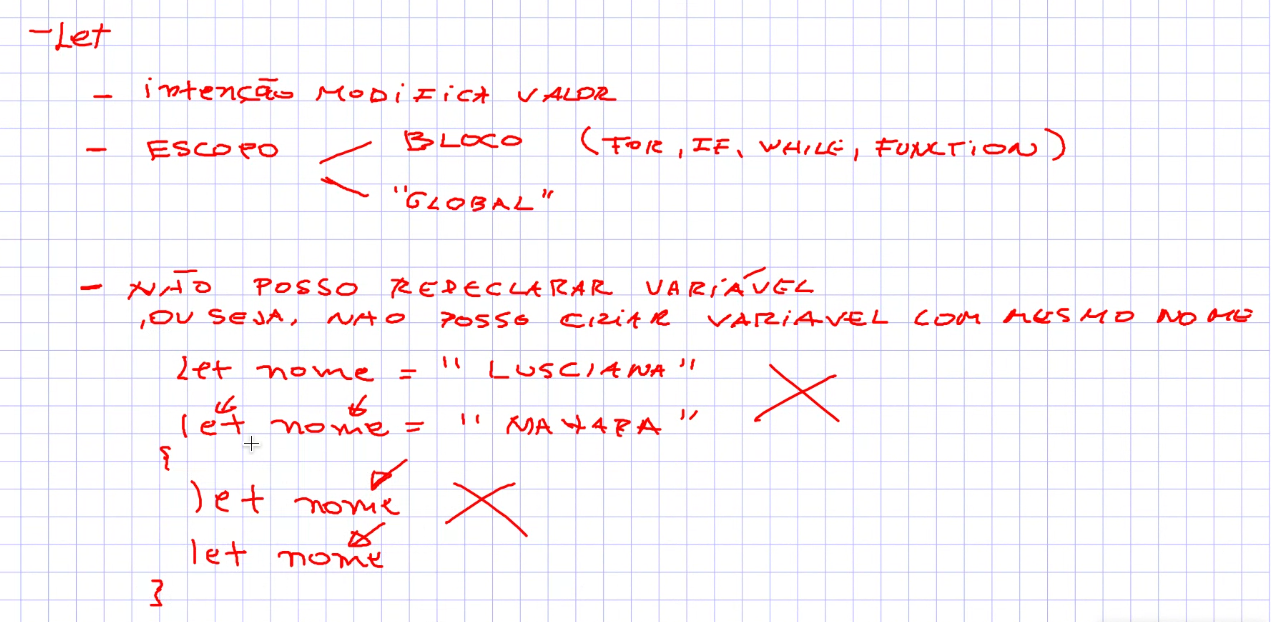 - Let
- intenção MODIFICA VALOR
- ESCOPO
BLOCO (FOR, IF, WHILE, FUNCTION)
"GLOBAL"
- NÃO POSSO REDECLARAR VARIÁVEL
, OU SEJA, NAO POSSO CRIAR VARIAVEL COM MESMO NOME
let nome = " LUSCIANA "
let nome = " MAYARA "
{
let nome
let nome
}